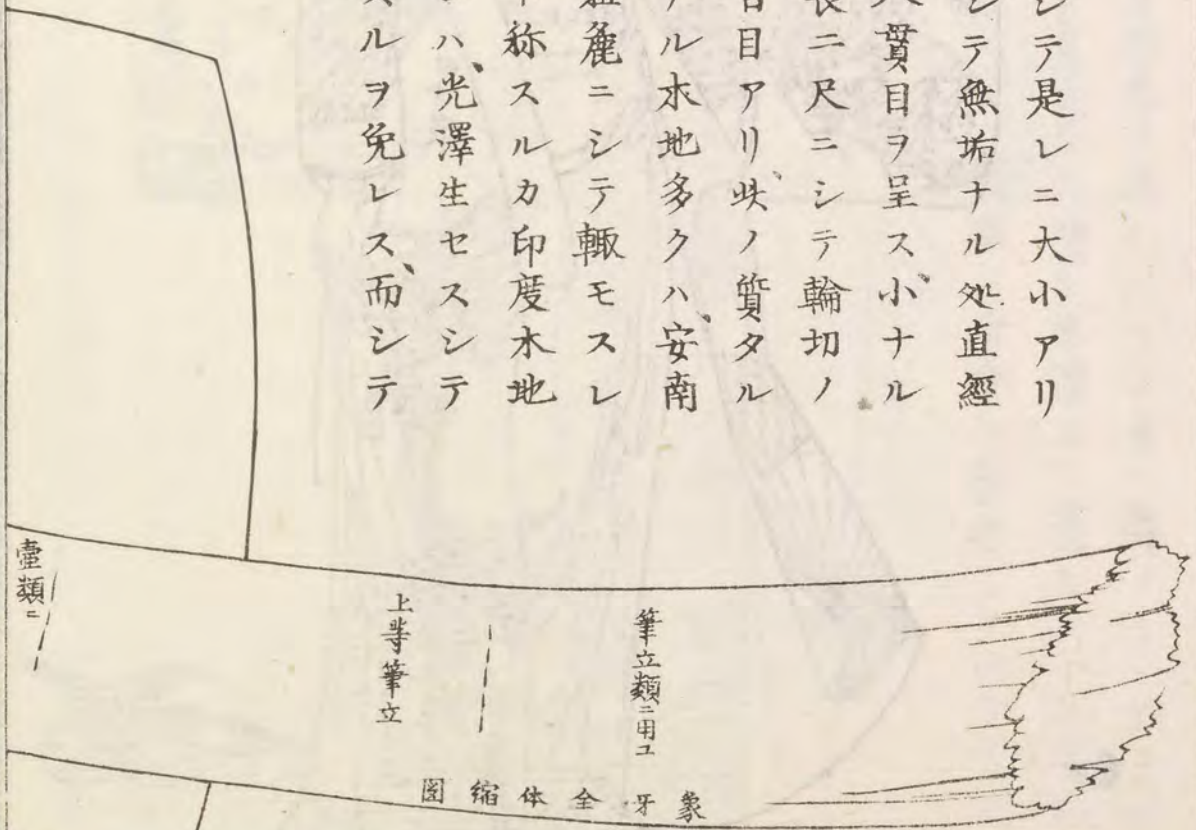 シテ是レニ大小アリ
シテ無垢ナル処直經
貫目ヲ呈ス小ナル
長二尺ニシテ輪切ノ
目アリ此ノ質タル
ル木地多クハ安南
麁ニシテ輙モスレ
称スルカ印度木地
ハ光澤生セスシテ
ルヲ免レス而シテ
筆立類ニ用ユ
上等筆立
壷類ニ
象牙全体縮圖